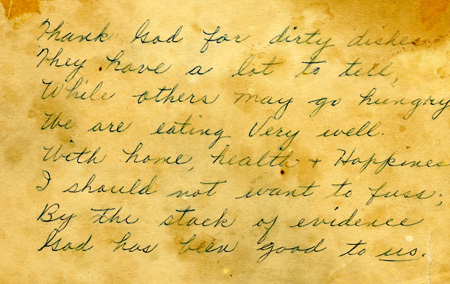 Thank God for dirty dishes
They have a lot to tell,
While others may go hungry
We are eating Very well.
With home, health + Happines
I should not want to fuss;
By the stack of evidence
God has been good to us.